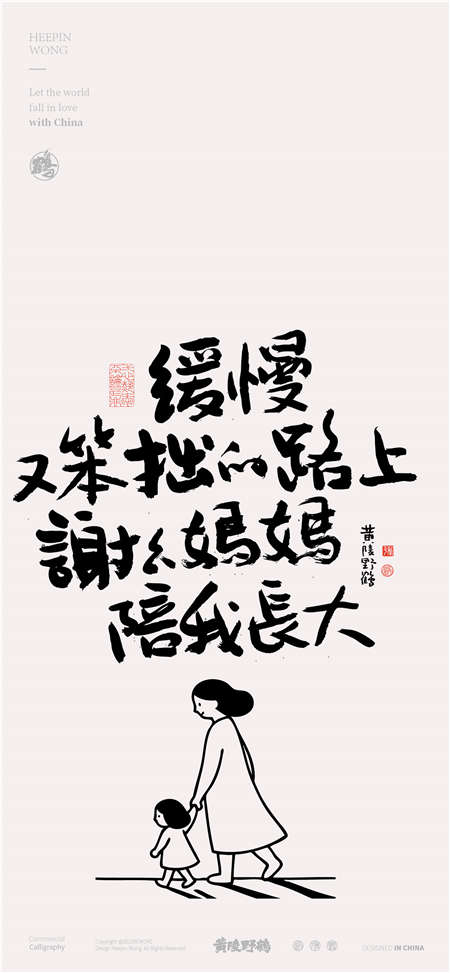 HEEPIN
WONG
Let the world
fall in love
with China
鶴
緩慢
又笨拙的路上
謝々媽媽
陪我長大
黃陵野鶴
Commercial
Calligraphy
Copyright @HEEPIN WONG
Design Heepin Wong All Rights Reserved
黃陵野鶴
DESIGNED IN CHINA